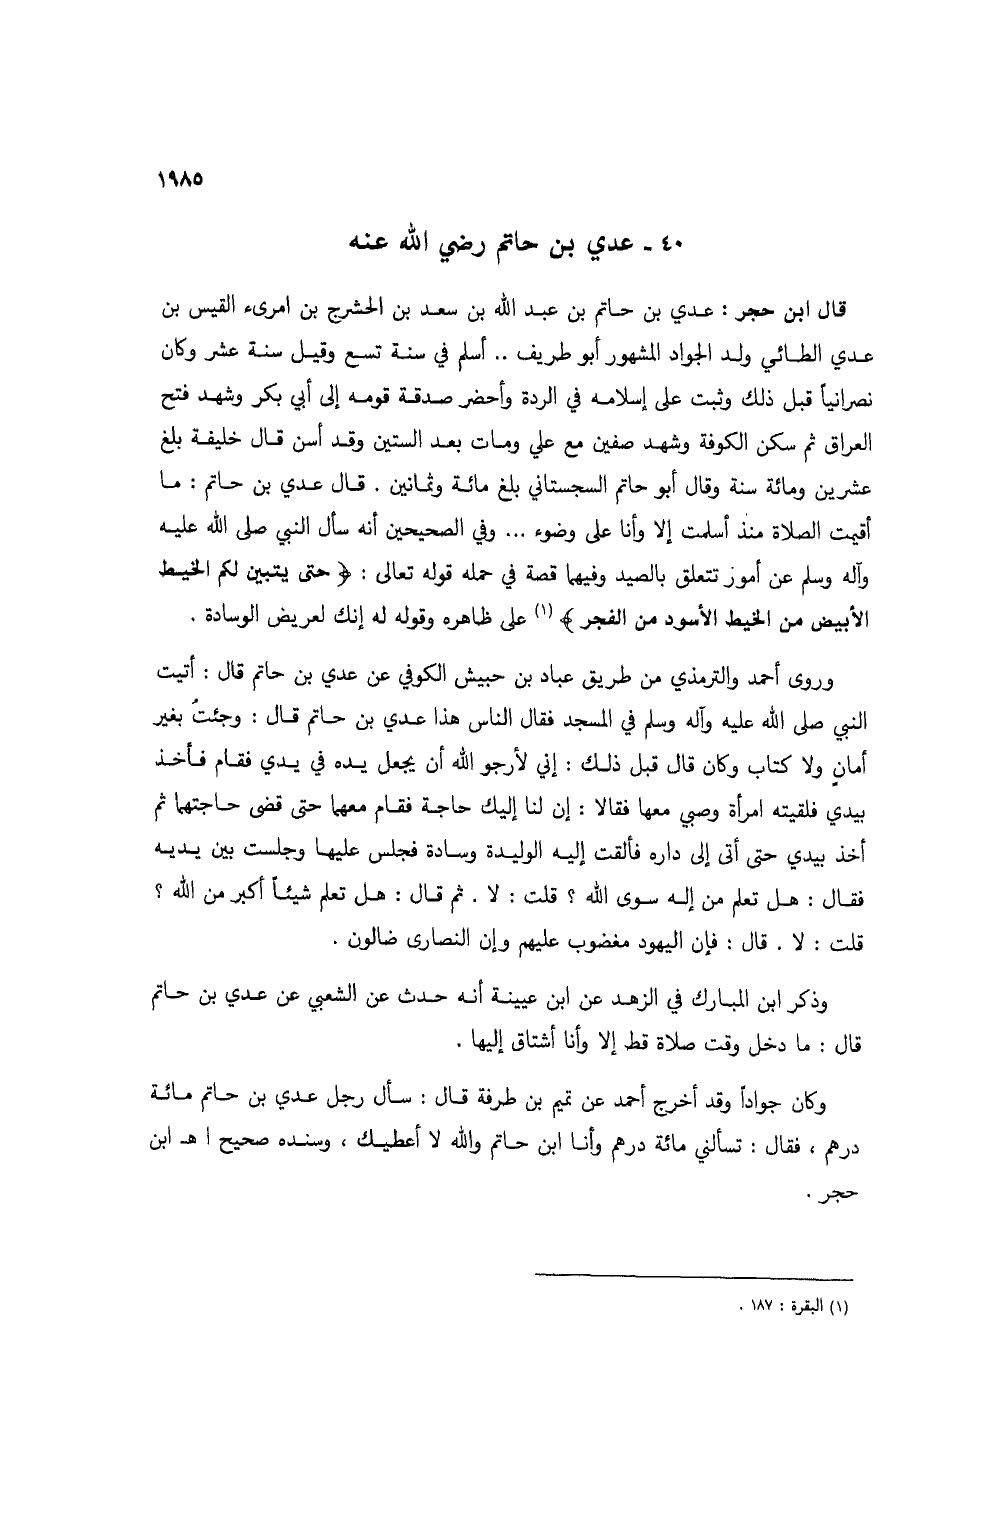 ١٩٨٥
٤٠ ـ عدي بن حاتم رضي الله عنه
قال ابن حجر : عدي بن حاتم بن عبد الله بن سعد بن الحشرج بن امرىء القيس بن
عدي الطائي ولد الجواد المشهور أبو طريف .. أسلم في سنة تسع وقيل سنة عشر وكان
نصرانياً قبل ذلك وثبت على إسلامه في الردة وأحضر صدقة قومه إلى أبي بكر وشهد فتح
العراق ثم سكن الكوفة وشهد صفين مع علي ومات بعد الستين وقد أسن قال خليفة بلغ
عشرين ومائة سنة وقال أبو حاتم السجستاني بلغ مائة وثمانين . قال عدي بن حاتم : ما
أقيمت الصلاة منذ أسلمت إلا وأنا على وضوء ... وفي الصحيحين أنه سأل النبي صلى الله عليه
وآله وسلم عن أمور تتعلق بالصيد وفيها قصة في حمله قوله تعالى : ﴿ حتى يتبين لكم الخيط
الأبيض من الخيط الأسود من الفجر ﴾ (١) على ظاهره وقوله له إنك لعريض الوسادة .
وروى أحمد والترمذي من طريق عباد بن حبيش الكوفي عن عدي بن حاتم قال : أتيت
النبي صلى الله عليه وآله وسلم في المسجد فقال الناس هذا عدي بن حاتم قال : وجئتُ بغير
أمانٍ ولا كتاب وكان قال قبل ذلك : إني لأرجو الله أن يجعل يده في يدي فقام فأخذ
بيدي فلقيته امرأة وصبي معها فقالا : إن لنا إليك حاجة فقام معهما حتى قضى حاجتهما ثم
أخذ بيدي حتى أتى إلى داره فألقت إليه الوليدة وسادة فجلس عليها وجلست بين يديه
فقال : هل تعلم من إله سوى الله ؟ قلت : لا . ثم قال : هل تعلم شيئاً أكبر من الله ؟
قلت : لا . قال : فإن اليهود مغضوب عليهم وإن النصارى ضالون .
وذكر ابن المبارك في الزهد عن ابن عيينة أنه حدث عن الشعبي عن عدي بن حاتم
قال : ما دخل وقت صلاة قط إلا وأنا أشتاق إليها .
وكان جواداً وقد أخرج أحمد عن تميم بن طرفة قال : سأل رجل عدي بن حاتم مائة
درهم ، فقال : تسألني مائة درهم وأنا ابن حاتم والله لا أعطيك ، وسنده صحيح ا هـ ابن
حجر .
(١) البقرة : ١٨٧ .